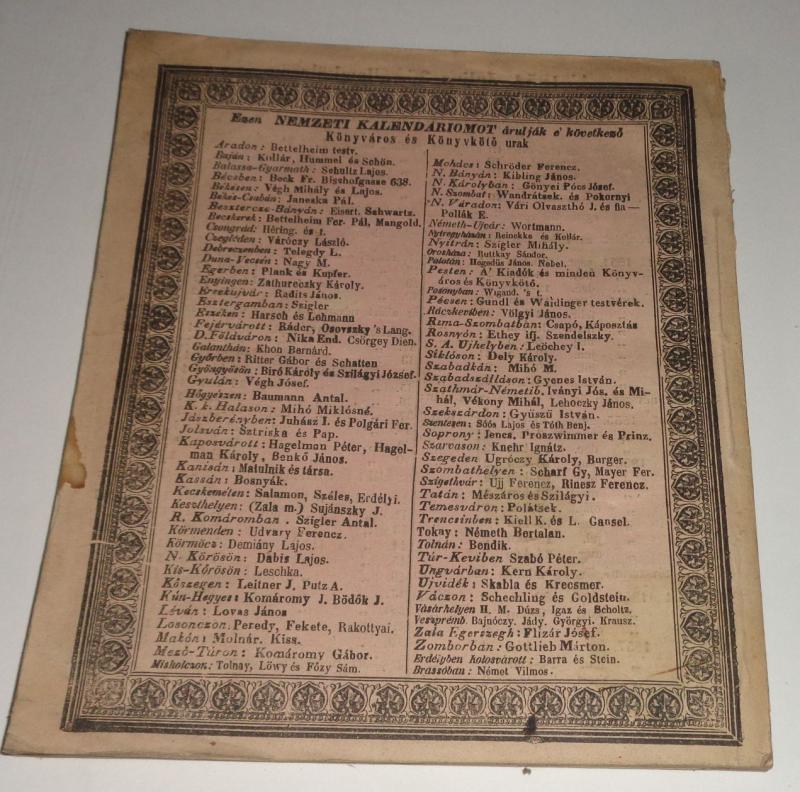 Ezen NEMZETI KALENDÁRIOMOT árulják e' következő
Könyváros és Könyvkötő urak
Aradon: Bettelheim testv.
Baján: Kollár, Hummel és Schön.
Balassa-Gyarmath: Schultz Lajos.
Bécsben: Beck Fr. Bischofgasse 638.
Békésen: Végh Mihály és Lajos.
Békés-Csabán: Janeska Pál.
Besztercze-Bányán: Eisert. Schwartz.
Becskerek: Bettelheim Fer. Pál, Mangold.
Csongrád: Héring. és t.
Czegléden: Váróczy László.
Debreczenben: Telegdy L.
Duna-Vecsén: Nagy M.
Egerben: Plank és Kupfer.
Enyingen: Zathureczky Károly.
Érsekujvár: Radits János.
Esztergamban: Szigler
Eszéken: Harsch és Lehmann
Fejérvárott: Ráder, Osovszky 's Lang.
D. Földváron: Nika End. Csörgey Dien.
Galanthán: Khon Bernárd.
Győrben: Ritter Gábor és Schatten
Gyöngyösön: Biró Károly és Szilágyi József.
Gyulán: Végh József.
Högyészen: Baumann Antal.
K. k. Halason: Mihó Miklósné.
Jászberényben: Juhász I. és Polgári Fer.
Jolsván: Sztriska és Pap.
Kaposvárott: Hagelman Péter, Hagel-
man Károly, Benkő János.
Kanisán: Matulnik és társa.
Kassán: Bosnyák.
Kecskeméten: Salamon, Széles, Erdélyi.
Keszthelyen: (Zala m.) Sujánszky J.
R. Komáromban. Szigler Antal.
Körmenden: Udvary Ferencz.
Körmöcz: Demiány Lajos.
N. Körösön: Dabis Lajos.
Kis-Körösön: Leschka.
Kőszegen: Leitner J, Putz A.
Kún-Hegyes: Komáromy J. Bődők J.
Léván: Lovas János
Losonczon: Peredy, Fekete, Rakottyai.
Makón: Molnár. Kiss.
Mező-Túron: Komáromy Gábor.
Miskolczon: Tolnay, Löwy és Fózy Sám.
Mohács: Schröder Ferencz.
N. Bányán: Kibling János.
N. Károlyban: Gönyei Pócs József.
N. Szombat: Wandrátsek. és Pokornyi
N. Váradon: Vári Olvaszthó J. és fia—
Pollák E.
Németh-Ujvár: Wortmann.
Nyíregyházán: Reinekka és Kollár.
Nyitrán: Szigler Mihály.
Orosháza: Ruttkay Sándor.
Palotán: Hegedüs János. Nebel.
Pesten: A' Kiadók és minden Könyv-
áros és Könyvkötő.
Posonyban: Wigand. 's t.
Pécsen: Gundl és Waidinger testvérek.
Ráczkeviben: Völgyi János.
Rima-Szombatban: Csapó, Káposztás
Rosnyón: Ethey ifj. Szendelszky.
S. A. Ujhelyben: Leöchey I.
Siklóson: Dely Károly.
Szabadkán: Mihó M.
Szabadszálláson: Gyenes István.
Szathmár-Németib. Iványi Jós. és Mi-
hál, Vékony Mihál, Lehoczky János.
Szekszárdon: Gyüszű István.
Szentesen: Sóós Lajos és Tóth Benj.
Soprony: Jencs, Proszwimmer és Prinz.
Szarvason: Knehr Ignátz.
Szegeden Ugróczy Károly, Burger.
Szombathelyen: Scharf Gy, Mayer Fer.
Szigethvár: Ujj Ferencz, Rinesz Ferencz.
Tatán: Mészáros és Szilágyi.
Temesváron: Polátsek.
Trencsinben: Kiell K. és L. Gansel.
Tokay: Németh Bertalan.
Tolnán: Bendik.
Túr-Keviben Szabó Péter.
Ungvárban: Kern Károly.
Ujvidék: Skabla és Krecsmer.
Váczon: Schechling és Goldstein.
Vásárhelyen H. M. Dúzs, Igaz és Scholtz.
Veszprémb. Bajnóczy. Jády. Györgyi. Krausz.
Zala Egerszegh: Flizár József.
Zomborban: Gottlieb Márton.
Erdélyben Kolosvárott: Barra és Stein.
Brassóban: Német Vilmos.